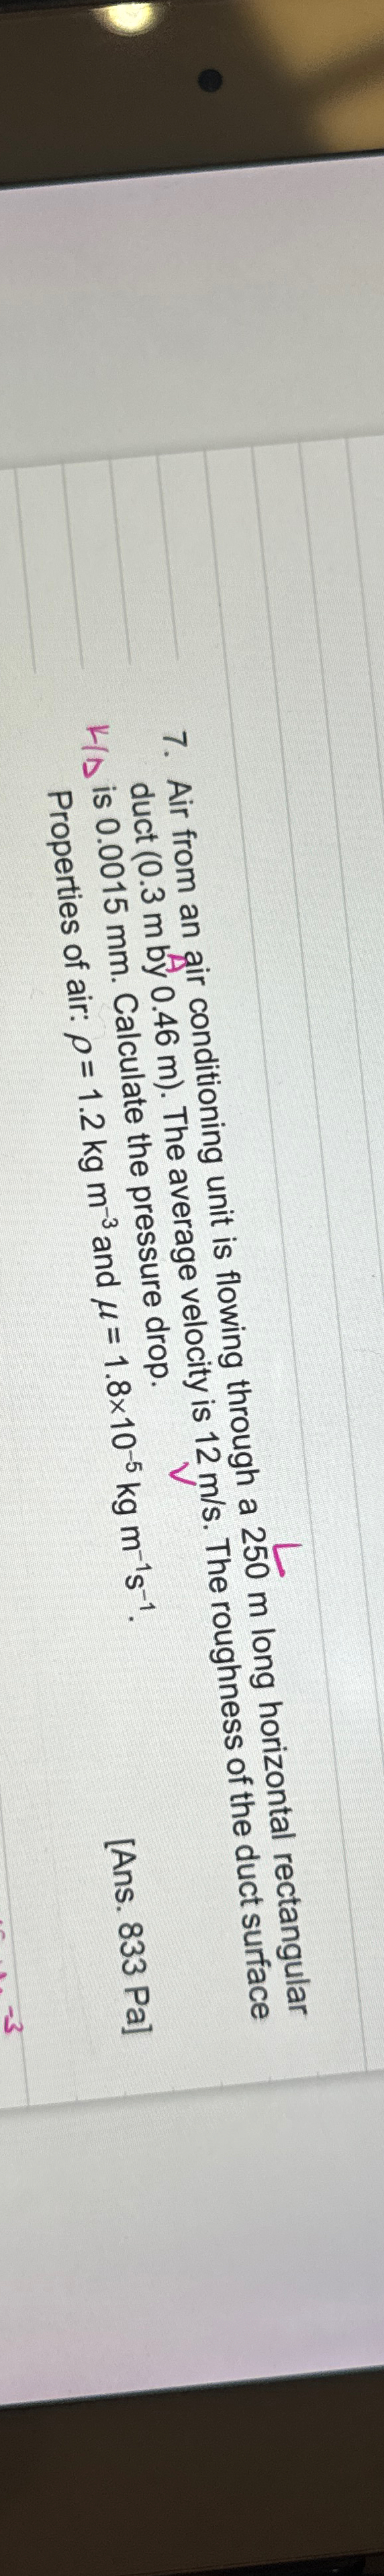 7. Air from an air conditioning unit is flowing through a 250 m long horizontal rectangular
duct (0.3 m by 0.46 m). The average velocity is 12 m/s. The roughness of the duct surface
is 0.0015 mm. Calculate the pressure drop.
Properties of air: ρ = 1.2 kg m⁻³ and μ = 1.8×10⁻⁵ kg m⁻¹s⁻¹.
[Ans. 833 Pa]
L
A
V
k/D